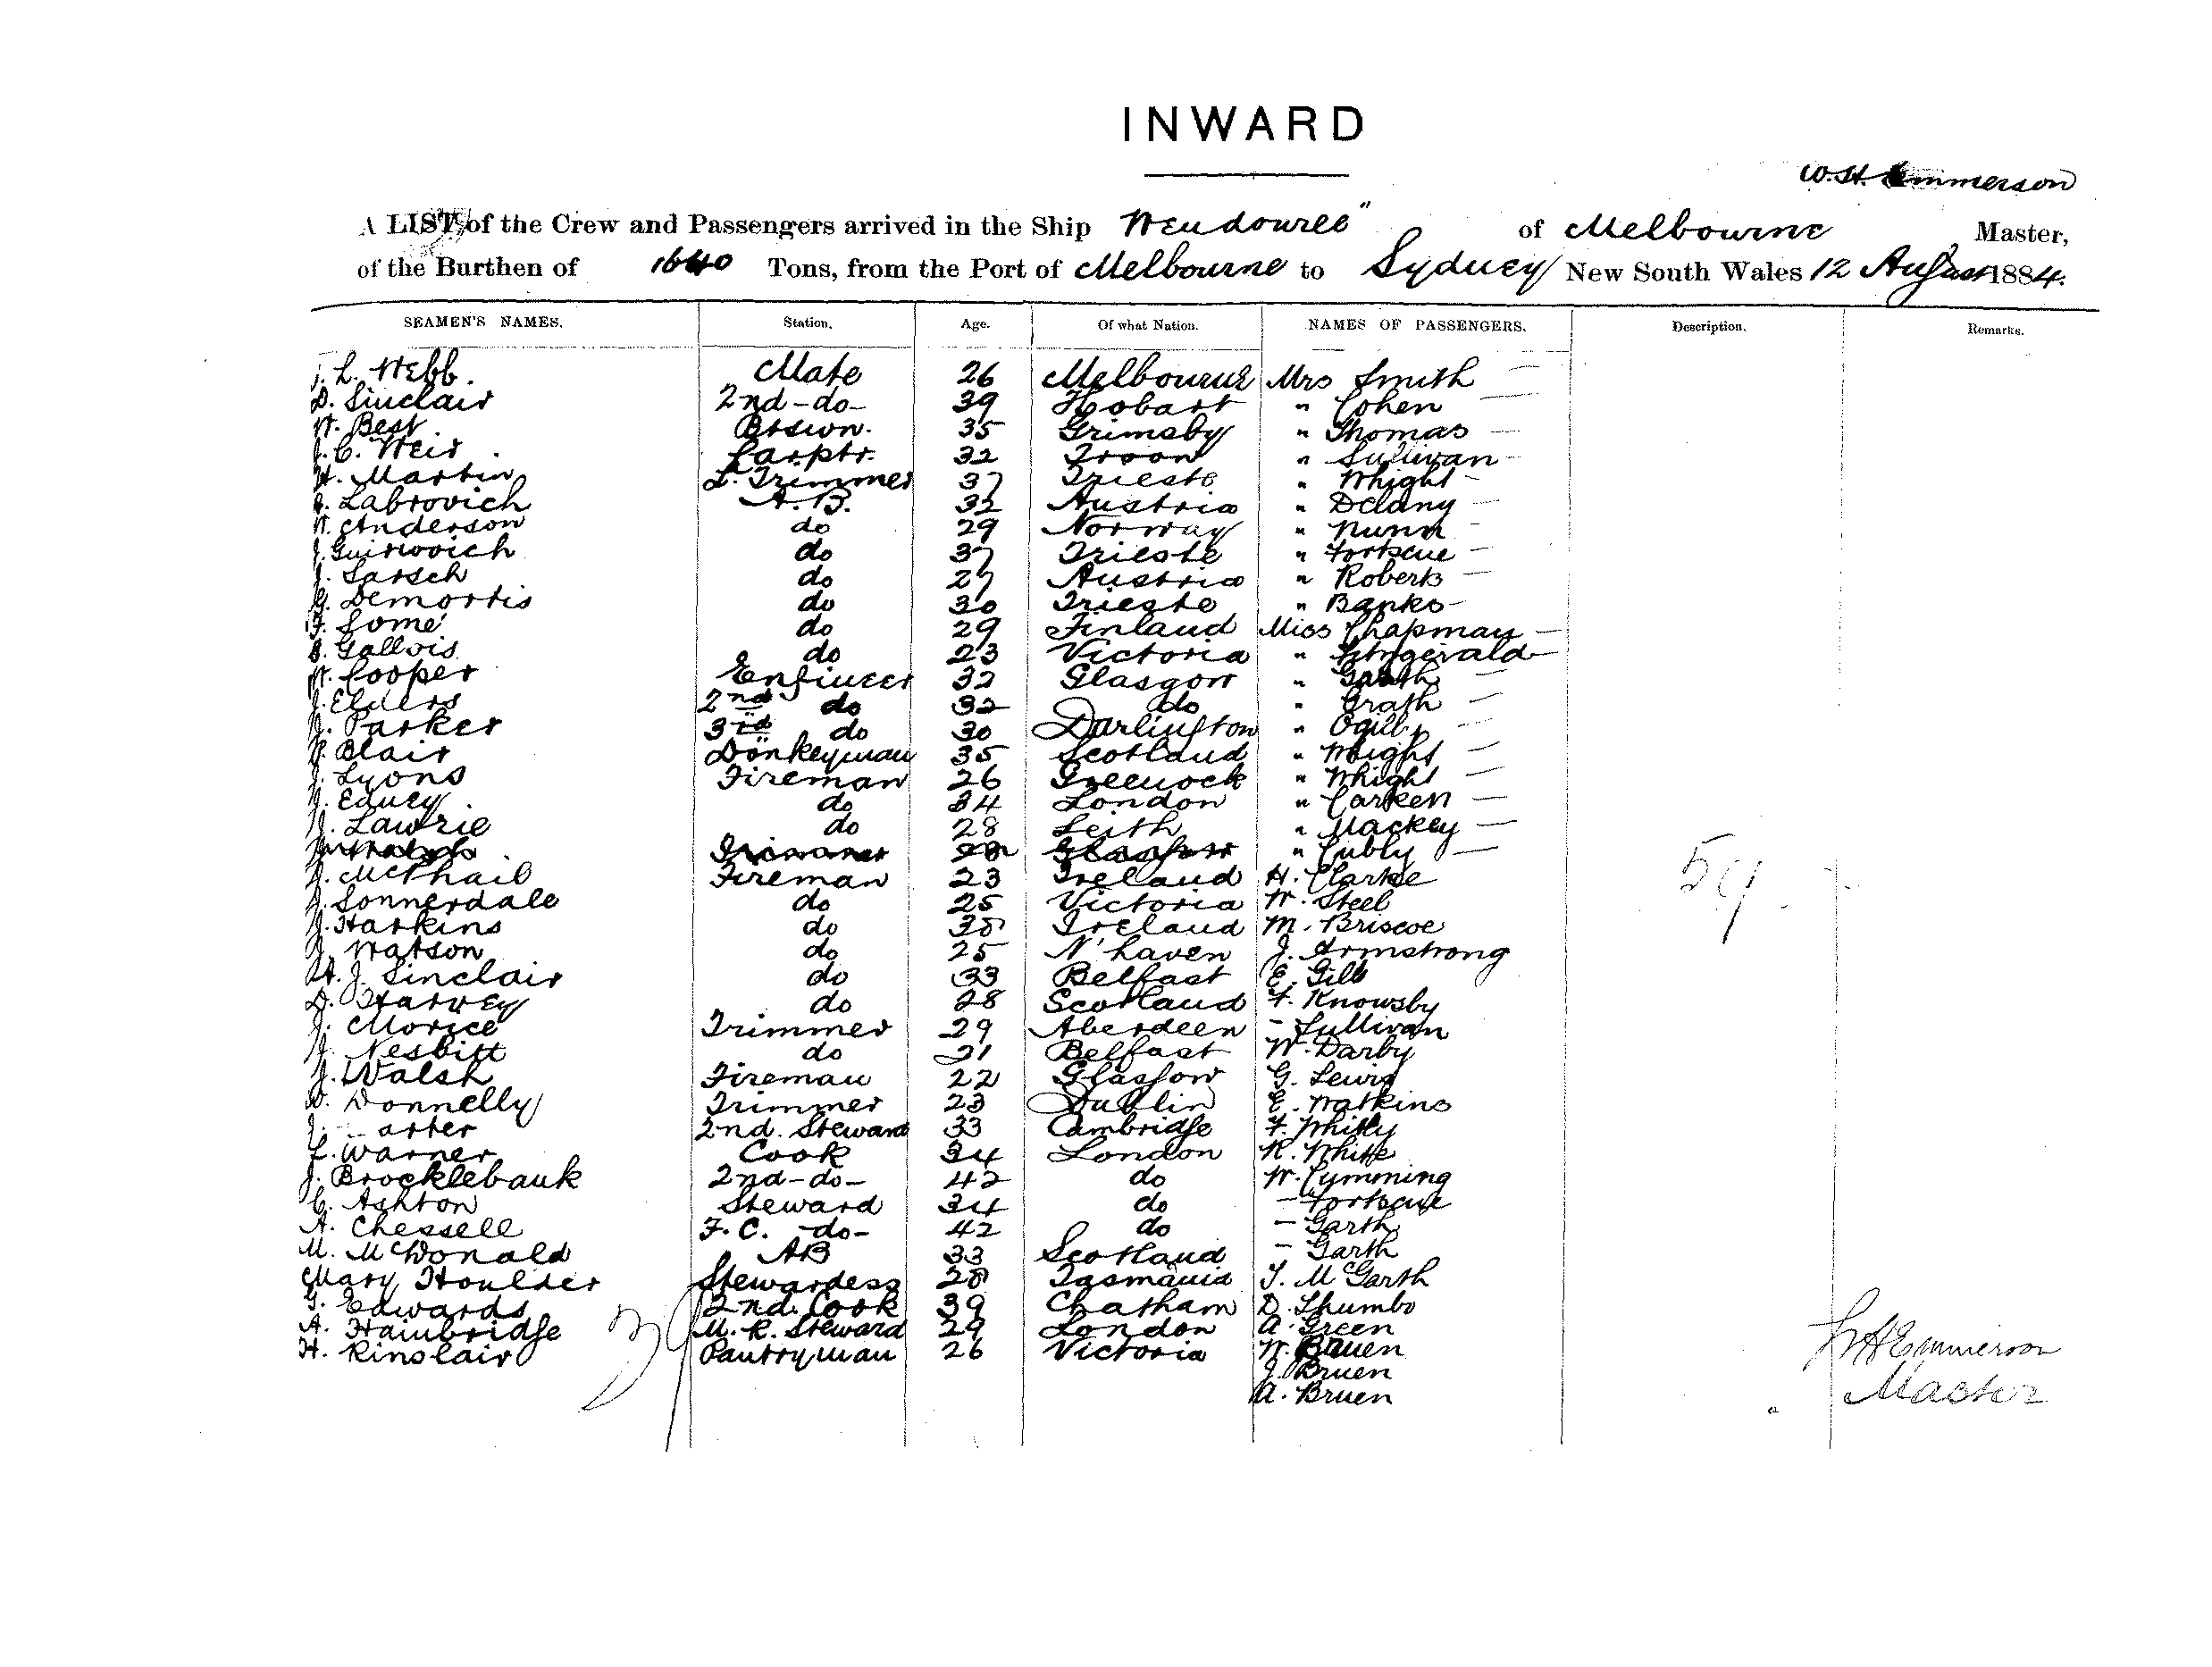 INWARD
W.H. Emmerson
A LIST of the Crew and Passengers arrived in the Ship "Wendouree" of Melbourne Master,
of the Burthen of 1640 Tons, from the Port of Melbourne to Sydney New South Wales 12 August 1884.
SEAMEN'S NAMES. Station. Age. Of what Nation. NAMES OF PASSENGERS. Description. Remarks.
L. Webb. Mate 26 Melbourne Mrs Smith —
D. Sinclair 2nd -do- 39 Hobart " Cohen —
W. Best. Botswn. 35 Grimsby " Thomas —
J. C. Weir. Carptr. 32 Troon " Sullivan -
H. Martin L. Trimmer 37 Trieste " Whight -
Labrovich A.B. 32 Austria " Delany —
W. Anderson do 29 Norway " Nunn -
J. do 37 Trieste " Fortscue —
J. Sarsch do 27 Austria " Roberts —
G. Demortis do 30 Trieste " Banks -
F. Some do 29 Finland Miss Chapman —
Gallois do 23 Victoria " Fitzgerald —
W. Cooper Engineer 32 Glasgow " Garth —
J. 2nd do 32 do " Grath —
J. Parker 3rd do 30 Darlington " —
Blair Donkeyman 35 Scotland " Whight —
J. Lyons Fireman 26 Greenock " Whight —
J. Edney. do 34 London " Carken —
J. Lawrie do 28 Leith " Mackey —
Trimmer Glasgow " Cubly —
McPhail Fireman 23 Ireland H. Clarke
J. Sonnerdale do 25 Victoria W. Steel
J. Harkins do 38 Ireland M. Briscoe
J. Watson do 25 N'haven J. Armstrong
H. J. Sinclair do 33 Belfast E. Gill
D. Harvey do 28 Scotland F. Knowsby
J. Morice Trimmer 29 Aberdeen - Sullivan
J. Nesbitt do 21 Belfast W. Darby
J. Walsh Fireman 22 Glasgow G. Lewis
D. Donnelly Trimmer 23 Dublin E. Watkins
J. arter 2nd. Steward 33 Cambridge F. Whitly
L. Warner Cook 34 London R. White
J. Brocklebank 2nd -do- 42 do W. Cumming
C. Ashton Steward 34 do - Fortscue
A. Chessell F. C. -do- 42 do - Garth
M. McDonald AB 33 Scotland - Garth
Mary Houlder Stewardess 28 Tasmania T. McGarth
G. Edwards 2nd. Cook 39 Chatham D. Thumbo
A. Hainbridge M. R. Steward 29 London A. Green
H. Kinslair Pantryman 26 Victoria W. Bruen
J. Bruen
A. Bruen
39
59
W H Emmerson
Master